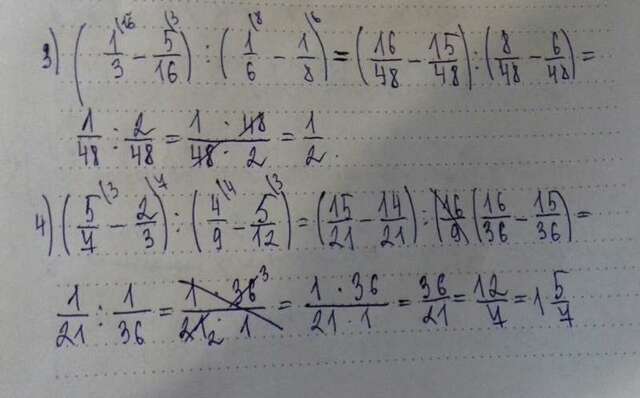 3) (1/3 \16 - 5/16 \3) : (1/6 \8 - 1/8 \6) = (16/48 - 15/48) : (8/48 - 6/48) =
1/48 : 2/48 = 1 · 48 / 48 · 2 = 1/2.
4) (5/7 \3 - 2/3 \7) : (4/9 \4 - 5/12 \3) = (15/21 - 14/21) : (16/9 (16/36 - 15/36) =
1/21 : 1/36 = 1 · 36 3 / 21 2 · 1 = 1 · 36 / 21 · 1 = 36/21 = 12/7 = 1 5/7